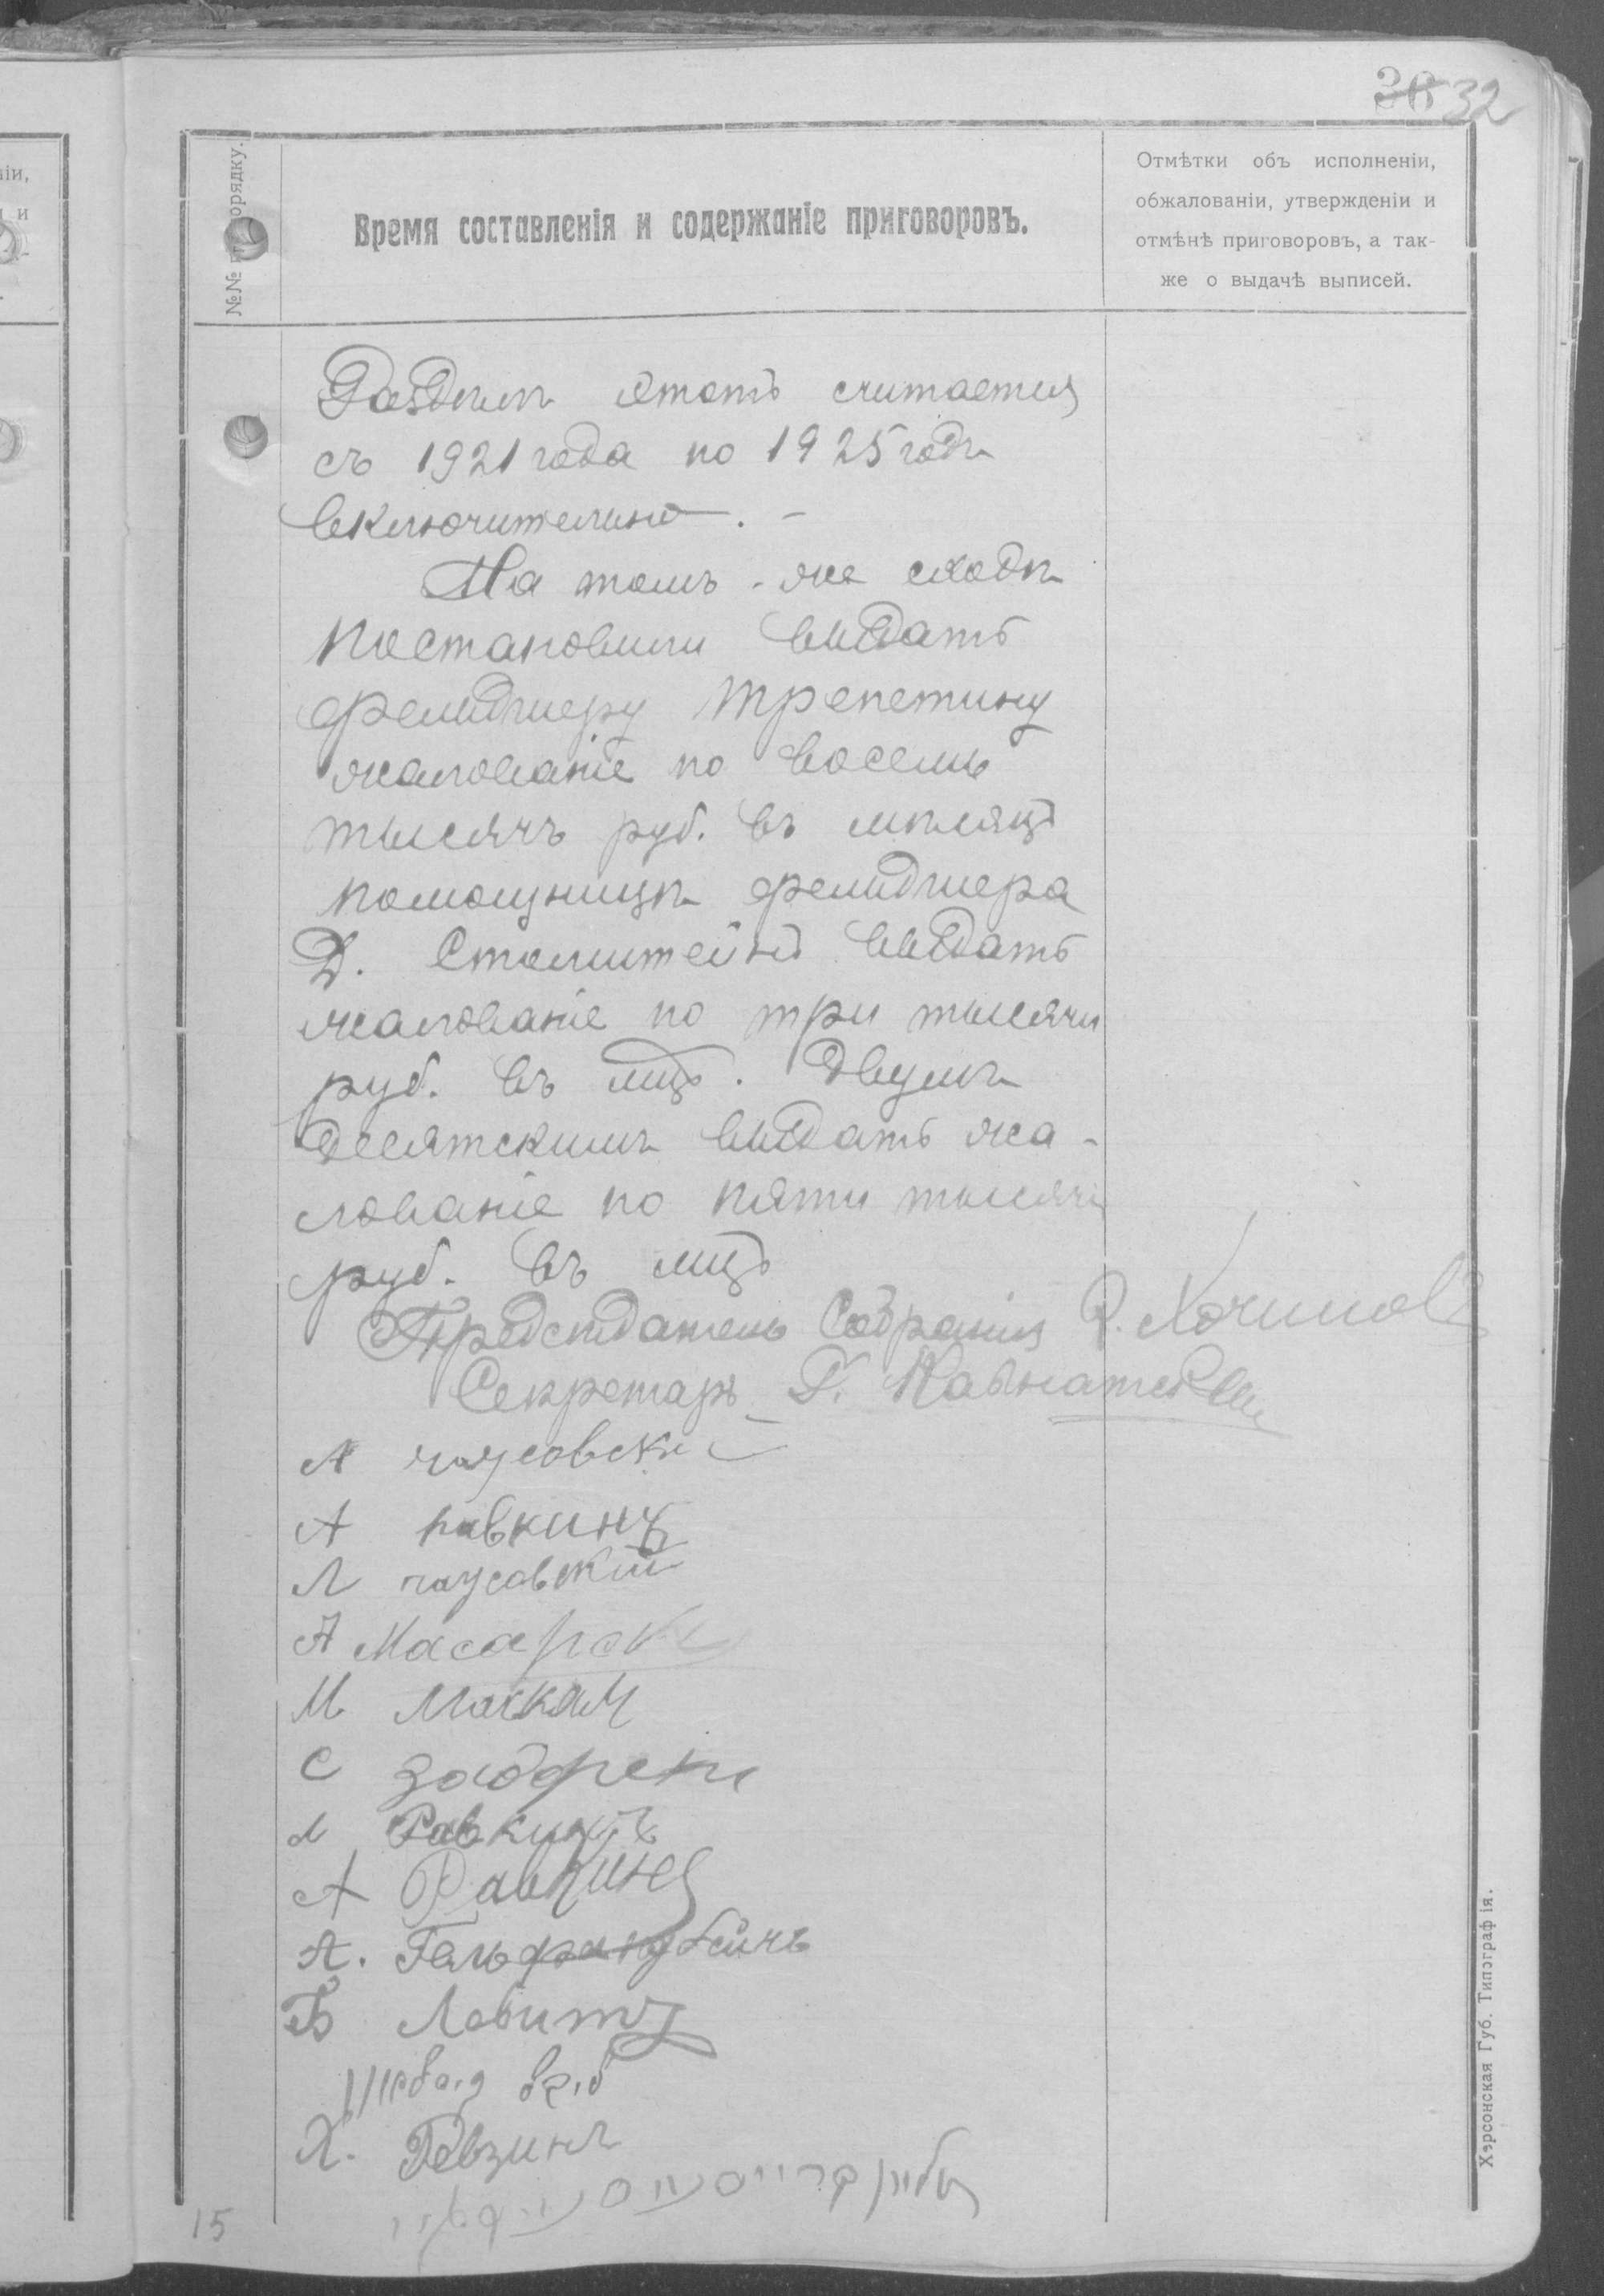 36 32
№№ по порядку.
Время составленія и содержаніе приговоровъ.
Отмѣтки объ исполненіи,
обжалованіи, утвержденіи и
отмѣнѣ приговоровъ, а так-
же о выдачѣ выписей.
Раздѣлъ этотъ считается
съ 1921 года по 1925 годъ
включительно. -
На томъ-же сходѣ
постановили выдать
фельдшеру Трепетину
жалованіе по восемь
тысячъ руб. въ мѣсяцъ
помощницѣ фельдшера
Д. Стольштейнъ выдать
жалованіе по три тысячи
руб. въ мцъ. Двумъ
десятскимъ выдать жа-
лованіе по пяти тысячъ
руб. въ мцъ
Предсѣдатель Собранія
Секретарь Г.
А чаусовскій
А равкинъ
Л чаусовскій
А
М
С
Л Равкинъ
А Равкинъ
А.
Б Левитъ
Х. Певзинъ
15
Херсонская Губ. Типографія.